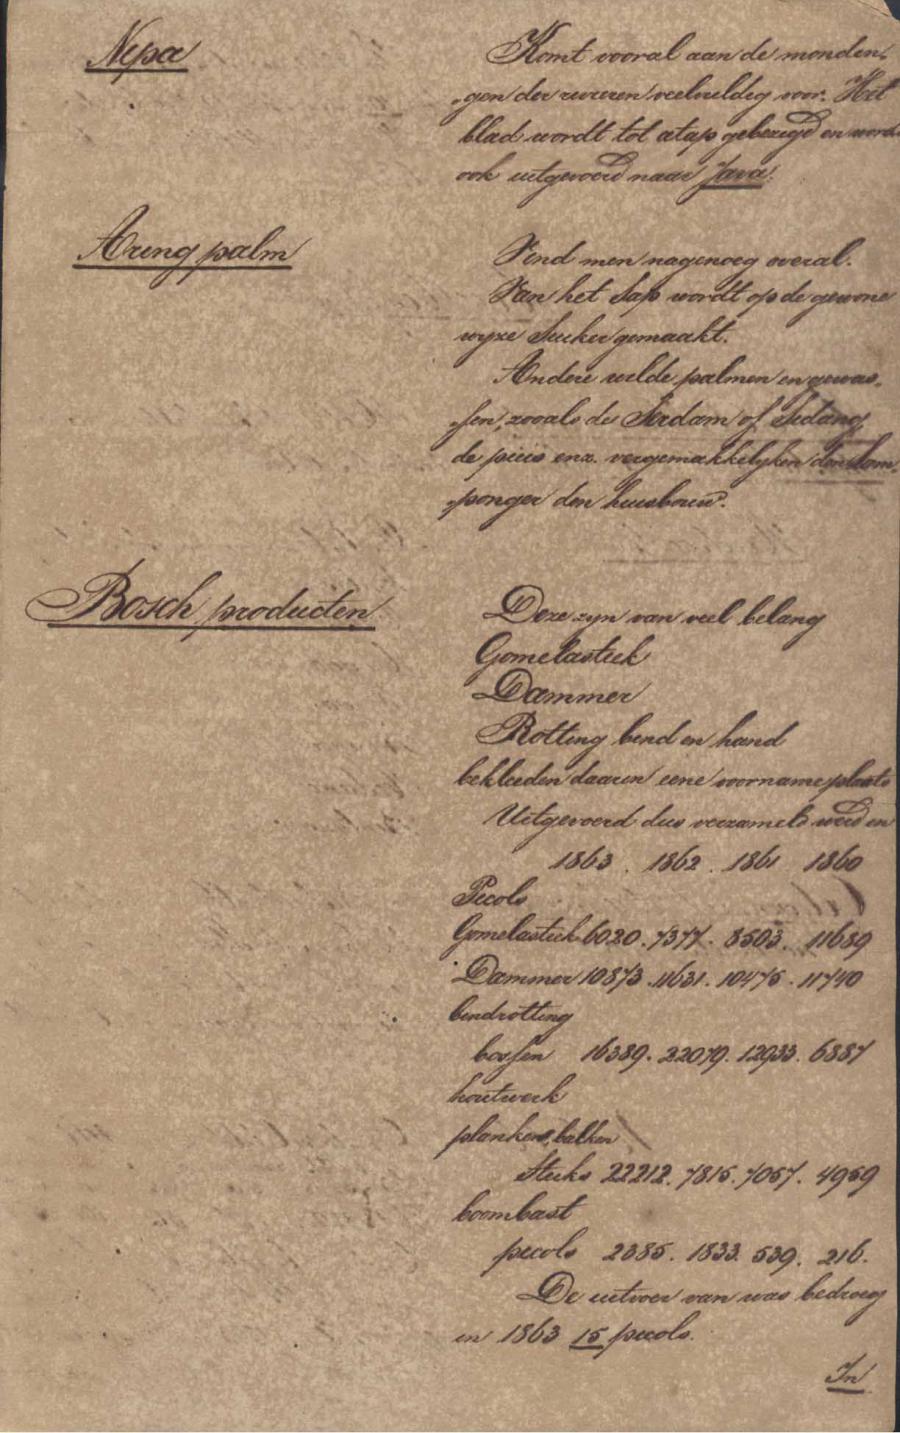 Nipa
Komt vooral aan de monden,
„gen der rivieren veelvuldig voor. Het
blad wordt tot atap gebezigd en word
ook uitgevoerd naar Java.
Areng palm
Vind men nagenoeg overal.
Van het sap wordt op de gewone
wyze suiker gemaakt.
Andere wilde palmen en gewas„
„sen, zooals de Serdam of Sedang
de enz. vergemakkelyken den Lam„
„ponger den huisbouw.
Bosch producten
Deze zyn van veel belang
Gomelastiek
Dammer
Rotting bind en hand
bekleeden daarin eene voorname plaats
Uitgevoerd dus verzameld werd in
1863 . 1862 . 1861 1860
Picols
Gomelastiek 6020 . 7377 . 8503 . 11689
Dammer 10873 . 11631 . 10475 . 11740
bindrotting
bossen 16389 . 22079 . 12933 . 6887
houtwerk
planken, balken
Stuks 22212 . 7815 . 7057 . 4959
boombast
picols 2385 . 1833 . 539 . 216.
De uitvoer van was bedroeg
in 1863 15 picols.
In